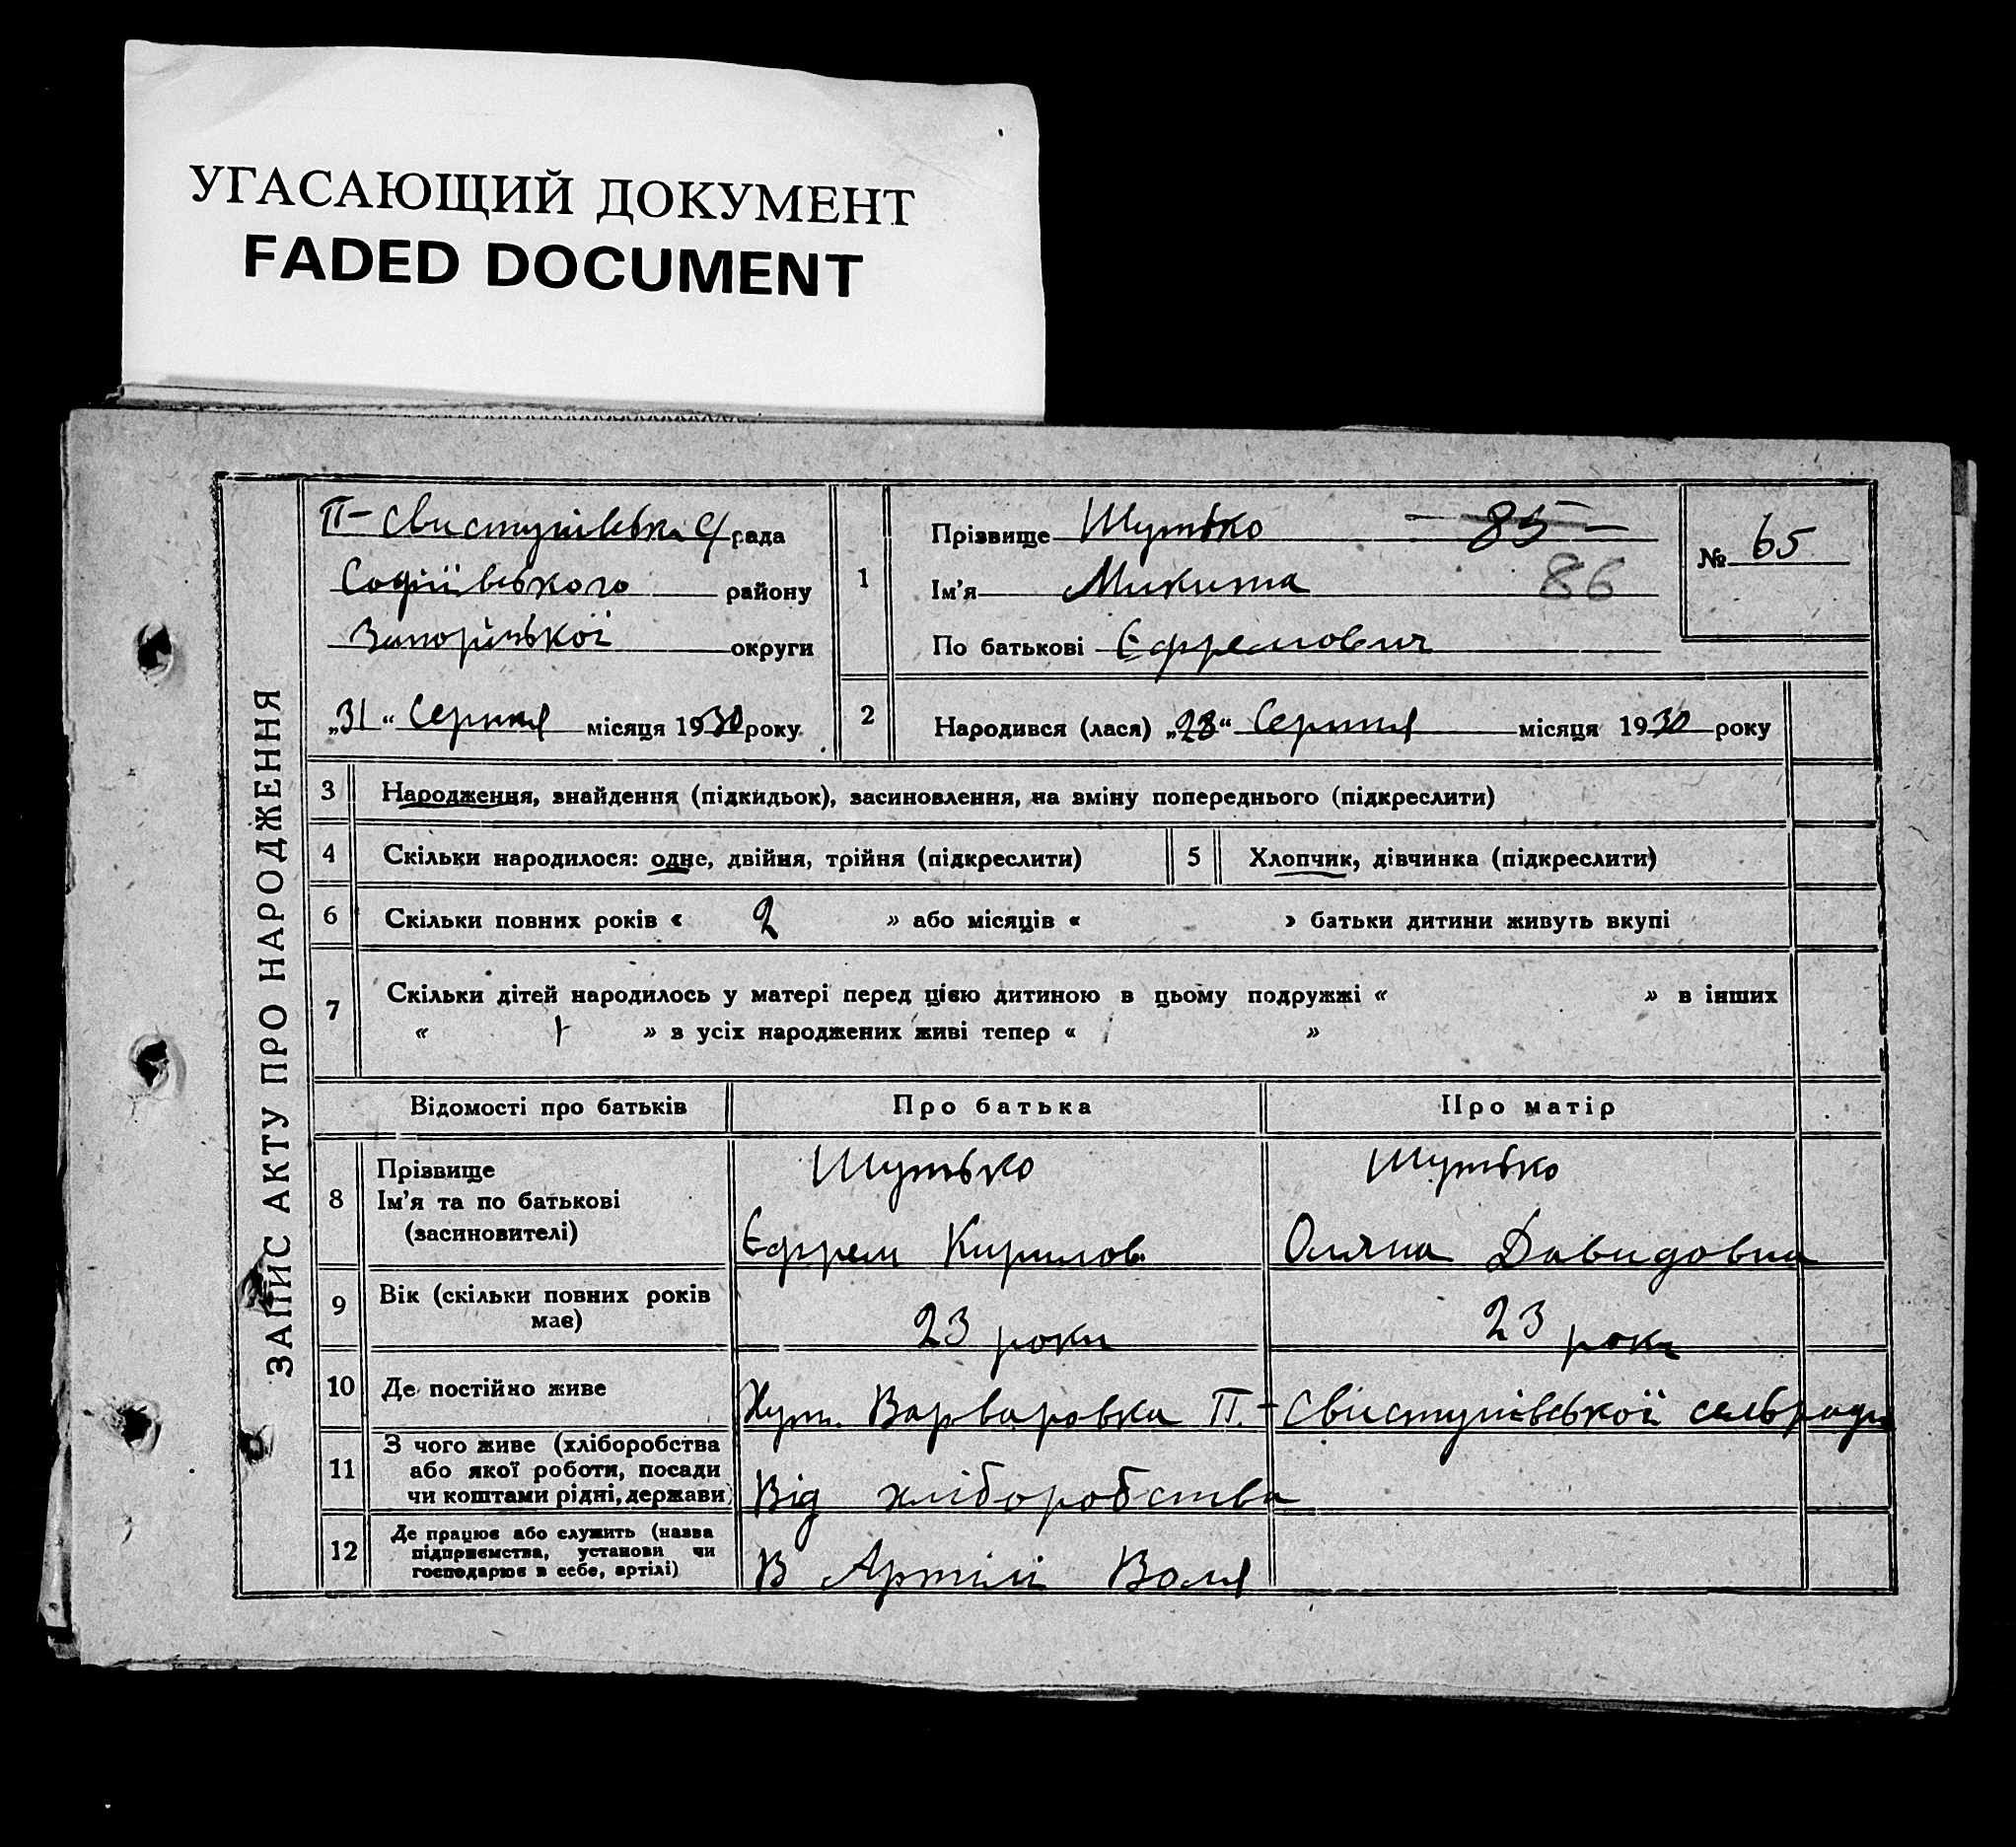 УГАСАЮЩИЙ ДОКУМЕНТ
FADED DOCUMENT
ЗАПИС АКТУ ПРО НАРОДЖЕННЯ
П-Свистунівська С/рада
Софіївського району
Запорізької округи
„31“ Серпня місяця 1930 року
1 Прізвище Шутько - 85 -
Ім'я Микита 86
По батькові Єфремович
№ 65
2 Народився (лася) „28“ Серпня місяця 1930 року
3 Народження, знайдення (підкидьок), засиновлення, на зміну попереднього (підкреслити)
4 Скільки народилося: одне, двійня, трійня (підкреслити) 5 Хлопчик, дівчинка (підкреслити)
6 Скільки повних років « 2 » або місяців « » батьки дитини живуть вкупі
7 Скільки дітей народилось у матері перед цією дитиною в цьому подружжі « » в інших
« » в усіх народжених живі тепер « »
Відомості про батьків Про батька Про матір
8 Прізвище Шутько Шутько
Ім'я та по батькові
(засиновителі) Єфрем Кирилов. Оляна Давидовна
9 Вік (скільки повних років
має) 23 роки 23 роки
10 Де постійно живе Хут. Варваровка П.-Свистунівської сельради
11 З чого живе (хліборобства
або якої роботи, посади
чи коштами рідні, держави) Від хліборобства
12 Де працює або служить (назва
підприємства, установи чи
господарює в себе, артілі) В Артілі Воля